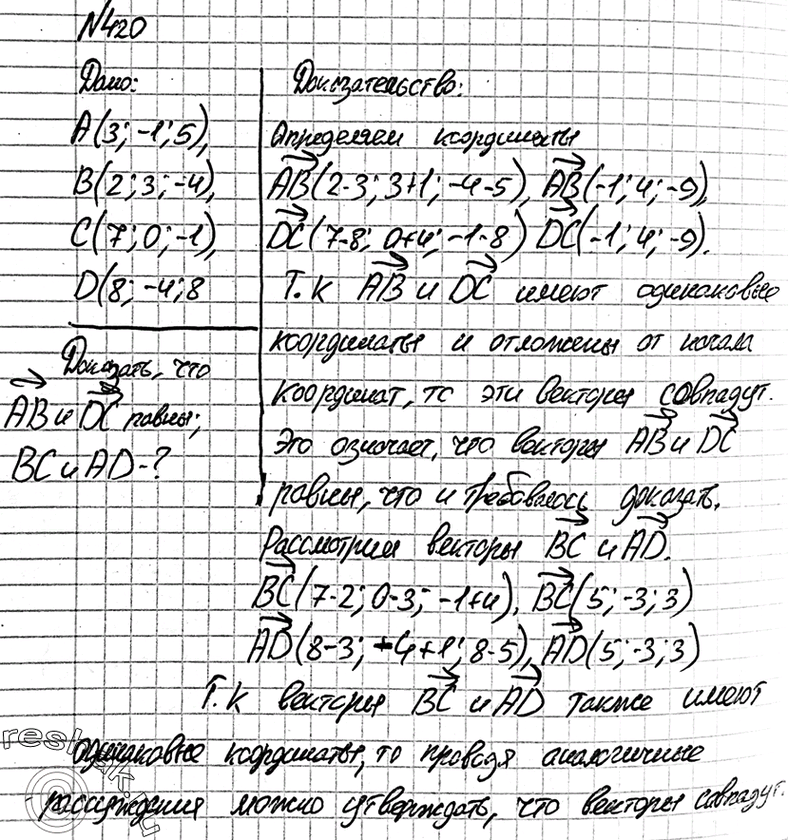 N420
Дано:
A(3; -1; 5),
B(2; 3; -4),
C(7; 0; -1),
D(8; -4; 8
Доказать, что
AB и DC равны;
BC и AD-?
Доказательство:
Определяем координаты
AB(2-3; 3+1; -4-5), AB(-1; 4; -9),
DC(7-8; 0+4; -1-8) DC(-1; 4; -9).
Т.к AB и DC имеют одинаковые
координаты и отложены от начала
координат, то эти векторы совпадут.
Это означает, что векторы AB и DC
равны, что и требовалось доказать.
Рассмотрим векторы BC и AD.
BC(7-2; 0-3; -1+4), BC(5; -3; 3)
AD(8-3; -4+1; 8-5), AD(5; -3; 3)
Т.к векторы BC и AD также имеют
одинаковые координаты, то проводя аналогичные
рассуждения можно утверждать, что векторы совпадут.